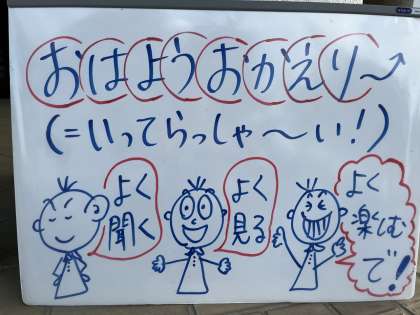 おはようおかえり〜
(=いってらっしゃ〜い!)
よく
聞く
よく
見る
よく
楽しむ
で!